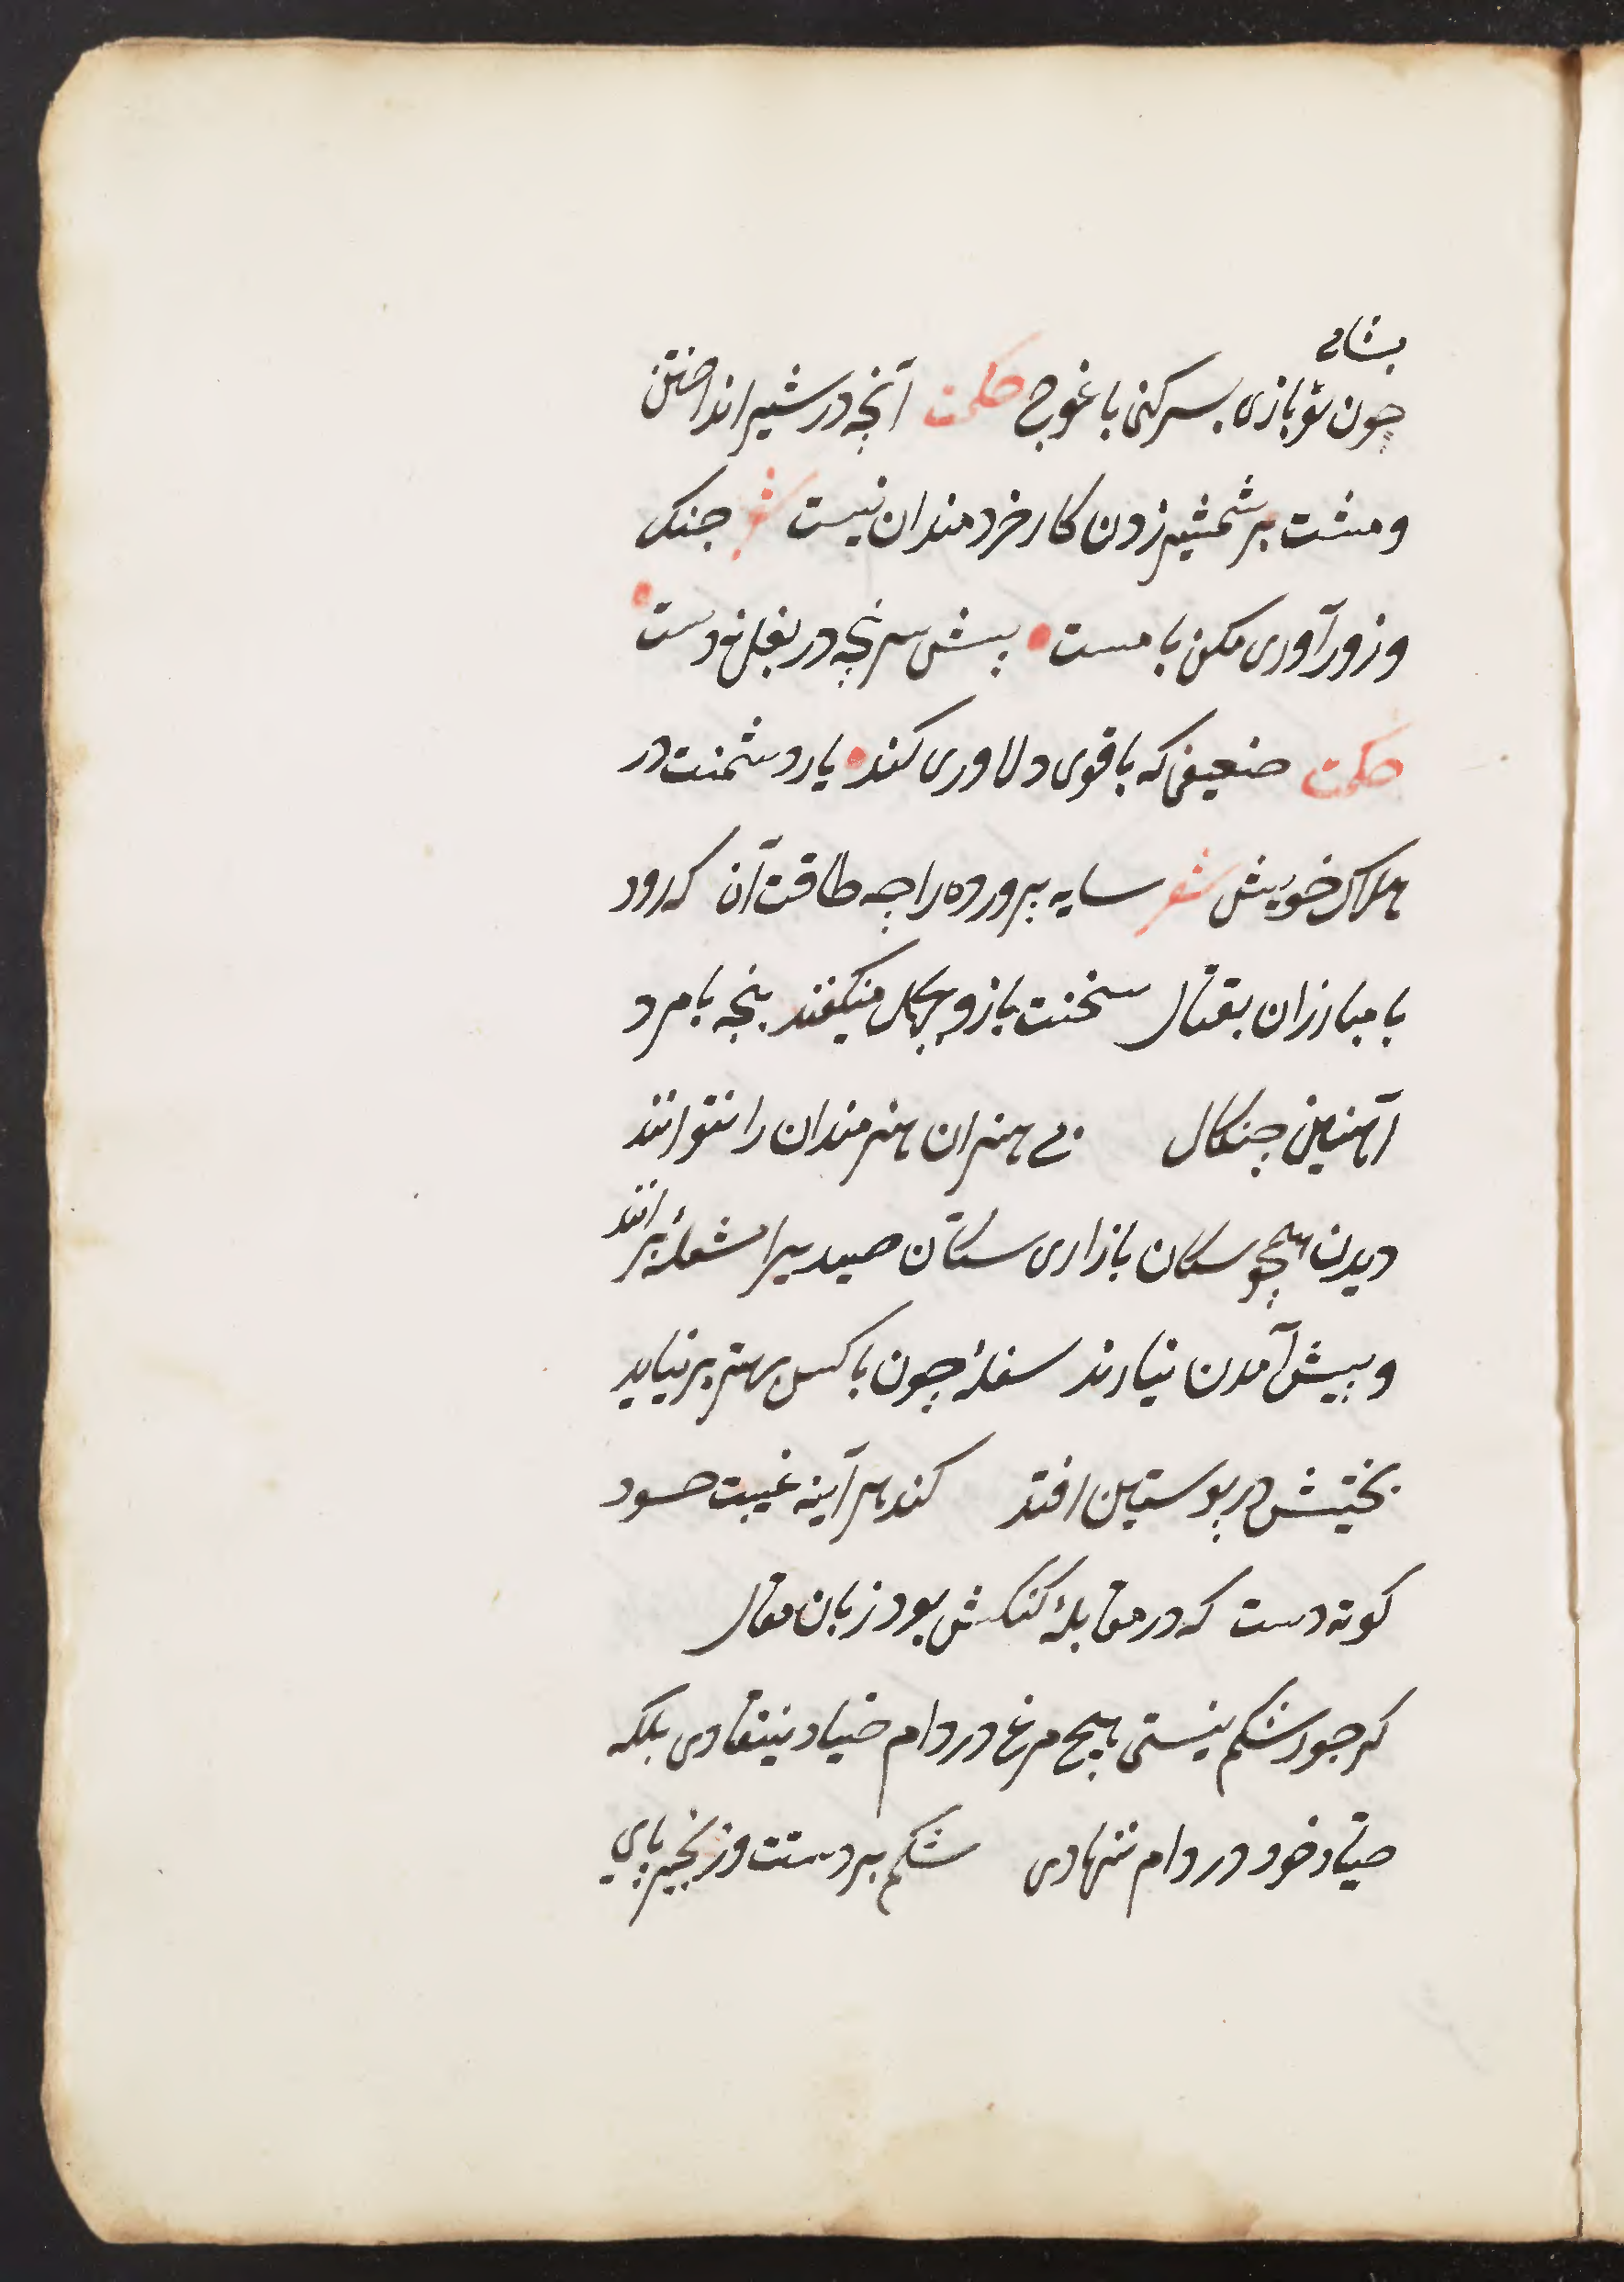 بشانی
چون تو بازی بسر کنی با غوج حکمت آنچه در شیر انداختن
و مشت بر شمشیر زدن کار خردمندان نیست شعر جنک
و زورآوری مکن با مست پیش سر پنجه در بغل نه دست
حکمت ضعیفی که با قوی دلاوری کند یار دشمنت در
هلاک خویش شعر سایه پرورده را چه طاقت آن که رود
با مبارزان بقتال سخت بازو بجهل میکفند پنجه با مرد
آهنین چنکال بی هنران هنرمندان را نتوانند
دیدن همچو سکان بازاری سکان صید یرا مشعله بر انند
و پیش آمدن نیارند سفله چون با کسی بهتر بر نیاید
بخبثش در پوستین افتد کند هر آینه غیبت حسود
کوته دست که در مقابله کنکش بود زبان مقال
کر جور شکم نیستی هیچ مرغ در دام صیاد نیفتادی بلکه
صیاد خود در دام ننهادی شکم بر دستت و زنجیر پای